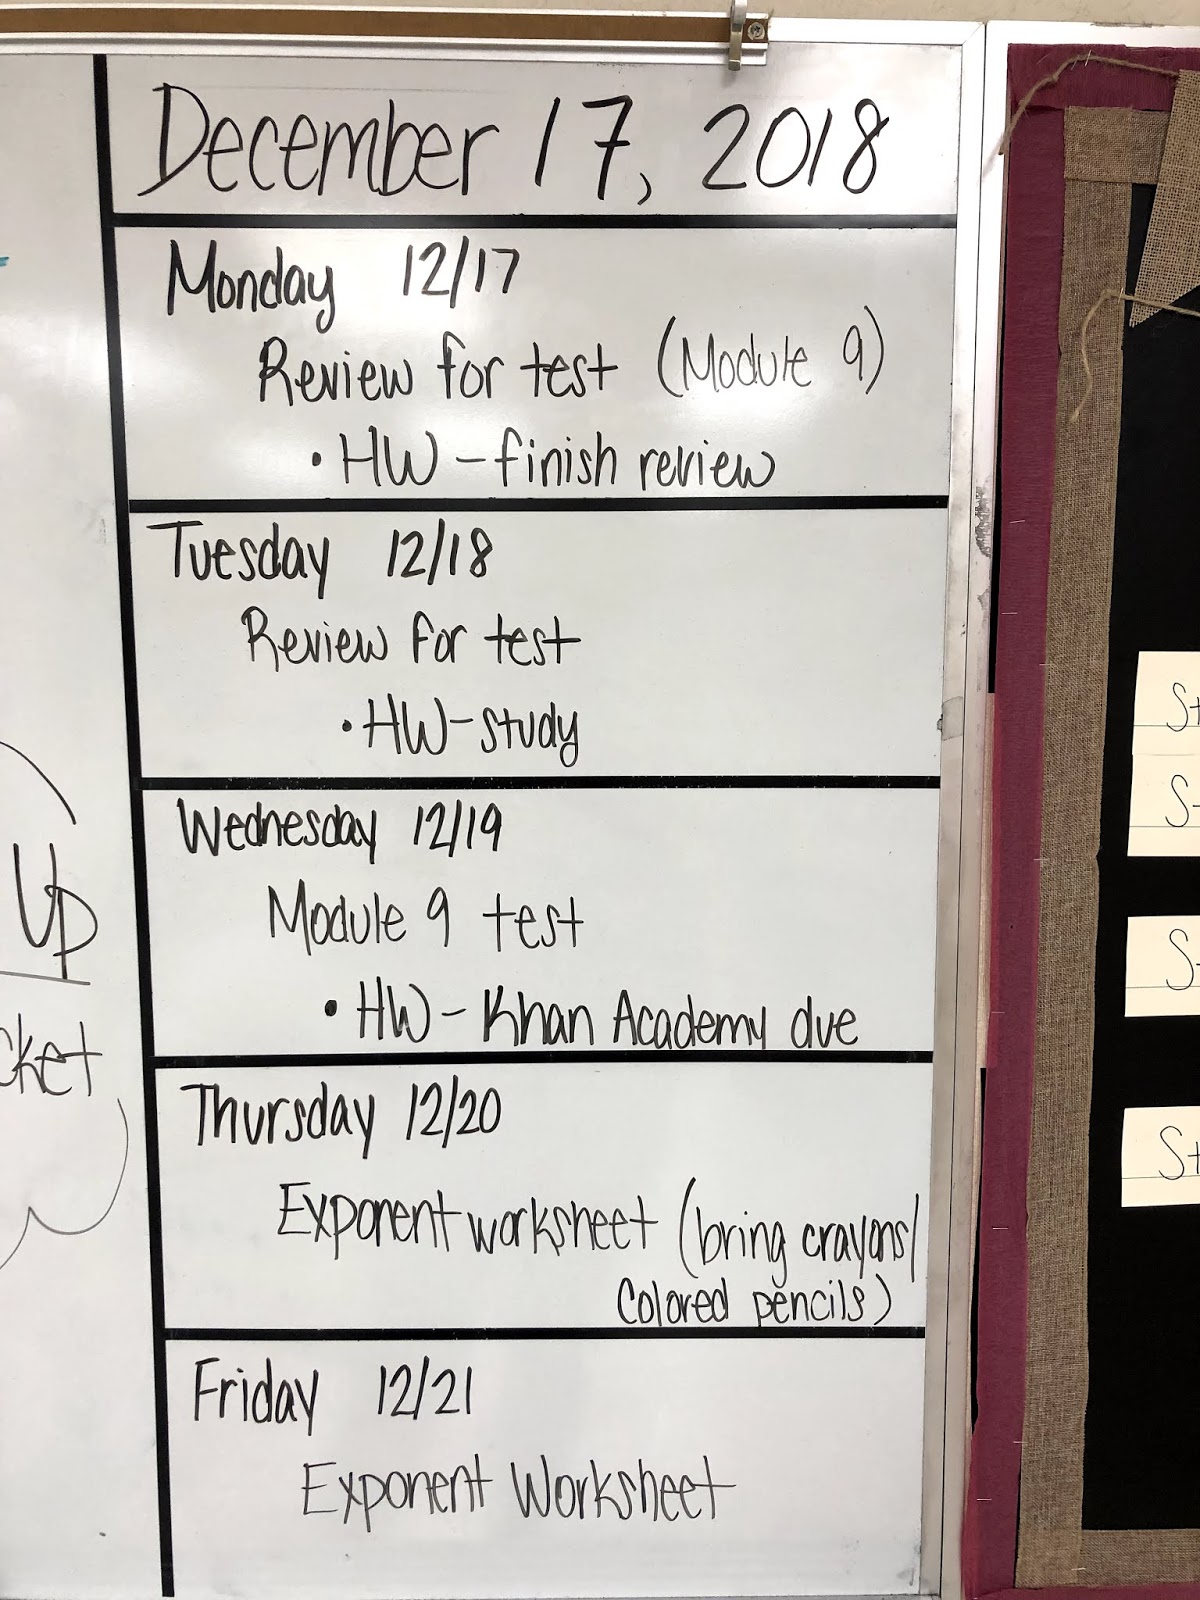 December 17, 2018
Monday 12/17
Review for test (Module 9)
• HW - finish review
Tuesday 12/18
Review for test
• HW - study
Wednesday 12/19
Module 9 test
• HW - Khan Academy due
Thursday 12/20
Exponent worksheet (bring crayons/
colored pencils)
Friday 12/21
Exponent Worksheet
UP